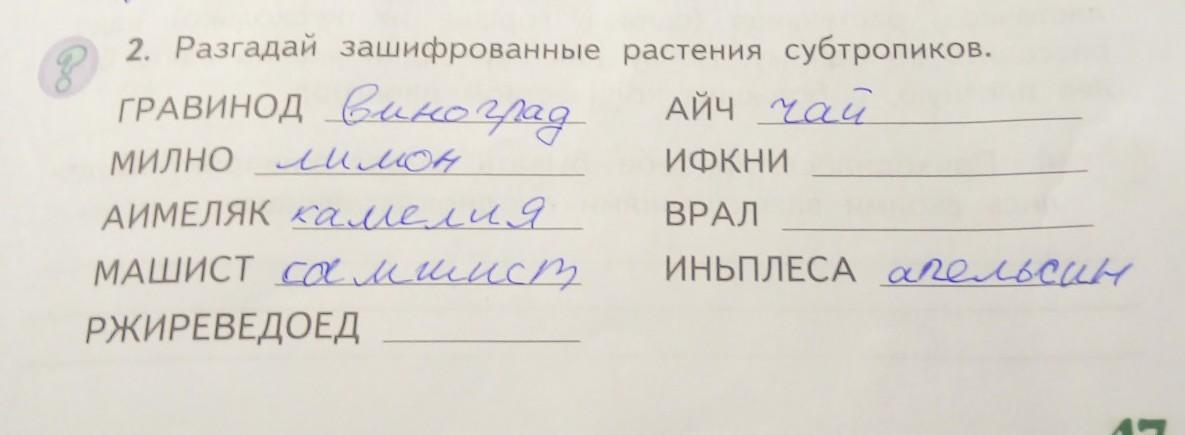 2. Разгадай зашифрованные растения субтропиков.
ГРАВИНОД виноград АЙЧ чай
МИЛНО лимон ИФКНИ
АИМЕЛЯК камелия ВРАЛ
МАШИСТ самшист ИНЬПЛЕСА апельсин
РЖИРЕВЕДОЕД